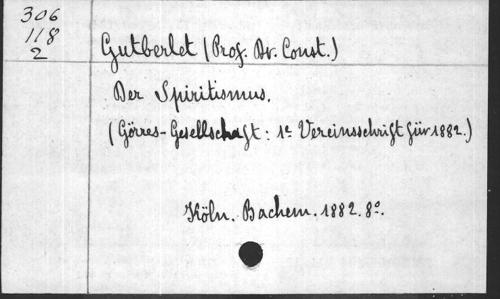 306
118
2
Gutberlet (Prof. Dr. Const.)
Der Spiritismus.
(Görres-Gesellschaft: 1e Vereinsschrift für 1882.)
Köln. Bachem. 1882. 8o.